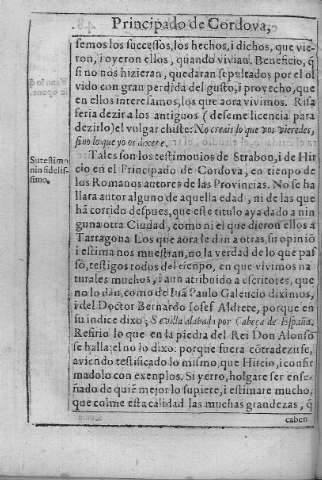 Principado de Cordova,
semos los sucessos, los hechos, i dichos, que vie-
ron, i oyeron ellos, quando vivian. Beneficio, q̃
si no nos hizieran, quedaran sepultados por el ol
vido con gran perdida del gusto, i provecho, que
en ellos interesamos, los que aora vivimos. Risa
seria dezir a los antiguos (deseme licencia para
dezirlo) el vulgar chiste: No creais lo que vos vieredes,
sino lo que yo os dixere.
Tales son los testimonios de Strabon, i de Hir
Su testimo
nio fidelis-
simo.
cio en el Principado de Cordova, en tienpo de
los Romanos autores de las Provincias. No se ha
llara autor alguno de aquella edad, ni de las que
hã corrido despues, que este titulo aya dado a nin
guna otra Ciudad, como ni el que dieron ellos a
Tarragona Los que aora le dan a otras, su opiniõ
i estima nos muestran, no la verdad de lo que pas
sò, testigos todos del tienpo, en que vivimos na
turales muchos, i aun atribuido a escritores, que
no lo dan, como de Paulo Galeucio diximos,
i del Doctor Bernardo Josef Aldrete, porque en
su indice dixo; Sevilla alabada por Cabeça de España.
Refirio lo que en la piedra del Rei Don Alonso
se halla: el no lo dixo: porque fuera cõtradezirse,
aviendo testificado lo mismo, que Hircio, i confir
madolo con exenplos. Si yerro, holgare ser ense-
ñado de quiẽ mejor lo supiere, i estimare mucho,
que colme esta calidad las muchas grandezas, q̃
caben